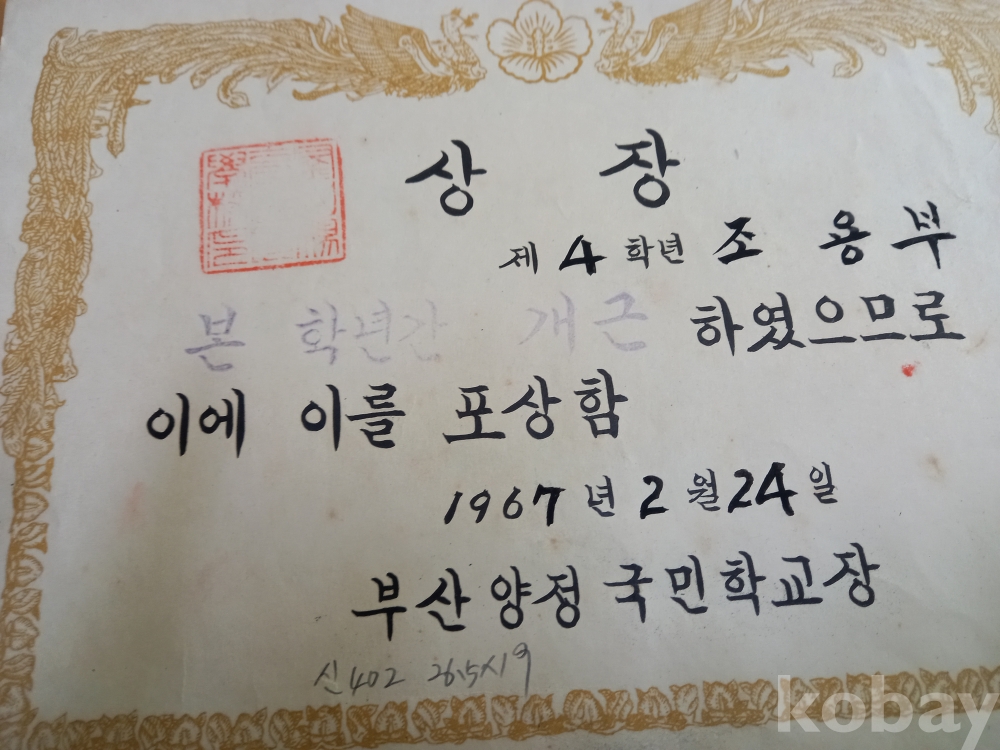 상 장
제 4 학년 조 용 부
본 학년간 개근 하였으므로
이에 이를 포상함
1967 년 2 월 24 일
부산양정국민학교장
신402 26.5x19
kobay